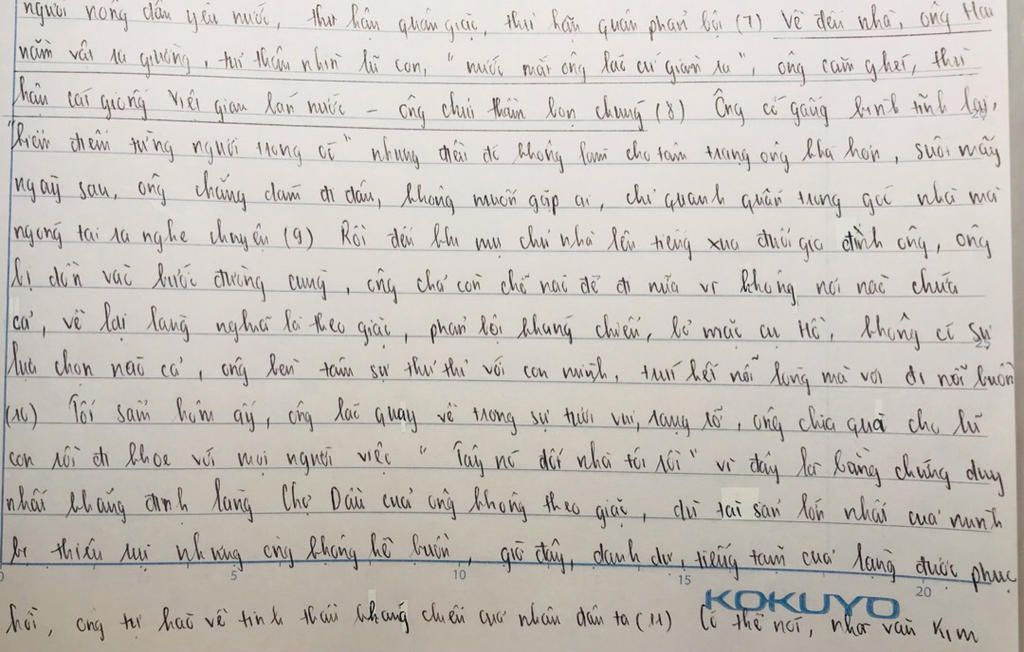 người nông dân yêu nước, thù hận quân giặc, thù hận quân phản bội (7) Về đến nhà, ông Hai
nằm vật ra giường, tủi thân nhìn lũ con, "nước mắt ông lão cứ giàn ra", ông căm ghét, thù
hận cái giống Việt gian bán nước – ông chửi thầm bọn chúng (8) Ông cố gắng bình tĩnh lại,
"kiểm điểm từng người trong óc" nhưng điều đó không làm cho tâm trạng ông khá hơn, suốt mấy
ngày sau, ông chẳng dám đi đâu, không muốn gặp ai, chỉ quanh quẩn trong góc nhà mà
ngóng tai ra nghe chuyện (9) Rồi đến khi mụ chủ nhà lên tiếng xua đuổi gia đình ông, ông
bị dồn vào bước đường cùng, ông chả còn chỗ nào để đi nữa vì không nơi nào chứa
cả, về lại làng nghĩa là theo giặc, phản bội kháng chiến, bỏ mặc cụ Hồ, không có sự
lựa chọn nào cả, ông bèn tâm sự thủ thỉ với con mình, trút hết nỗi lòng mà vơi đi nỗi buồn
(10) Tối sầm hôm ấy, ông lão quay về trong sự tươi vui, rạng rỡ, ông chia quà cho lũ
con rồi đi khoe với mọi người việc "Tây nó đốt nhà tôi rồi" vì đây là bằng chứng duy
nhất khẳng định làng Chợ Dầu của ông không theo giặc, dù tài sản lớn nhất của mình
bị thiêu rụi nhưng ông không hề buồn, giờ đây, danh dự, tiếng tăm của làng được phục
0 5 10 15 20
KOKUYO
hồi, ông tự hào về tinh thần kháng chiến của nhân dân ta (11) Có thể nói, nhà văn Kim